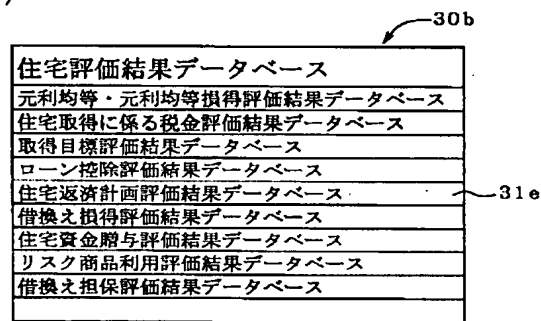 30b
住宅評価結果データベース
元利均等・元利均等損得評価結果データベース
住宅取得に係る税金評価結果データベース
取得目標評価結果データベース
ローン控除評価結果データベース
住宅返済計画評価結果データベース
31e
借換え損得評価結果データベース
住宅資金贈与評価結果データベース
リスク商品利用評価結果データベース
借換え担保評価結果データベース